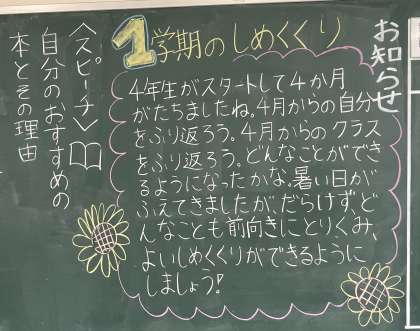 お知らせ
1学期のしめくくり
4年生がスタートして4か月
がたちましたね。4月からの自分
をふり返ろう。4月からのクラス
をふり返ろう。どんなことができ
るようになったかな。暑い日が
ふえてきましたが、だらけず、ど
んなことも前向きにとりくみ、
よいしめくくりができるように
しましょう!
〈スピーチ〉
自分のおすすめの
本とその理由